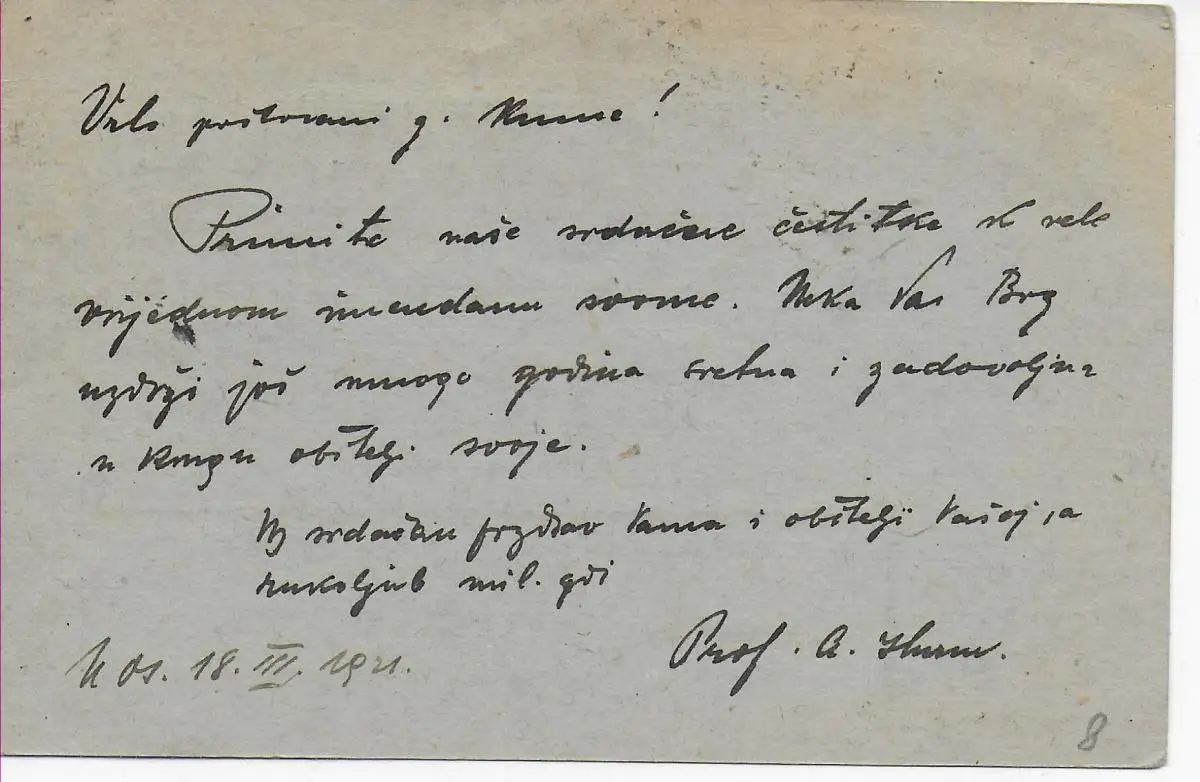 Vrlo poštovani g. Kume!
Primite naše srdačne čestitke k vele
vrijednom imendanu svome. Neka Vas Bog
uzdrži još mnogo godina sretna i zadovoljna
u krugu obitelji svoje.
Uz srdačan pozdrav Vama i obitelji Vašoj, a
rukoljub mil. gđi
Prof. A.
U Os. 18. III. 1921.
8